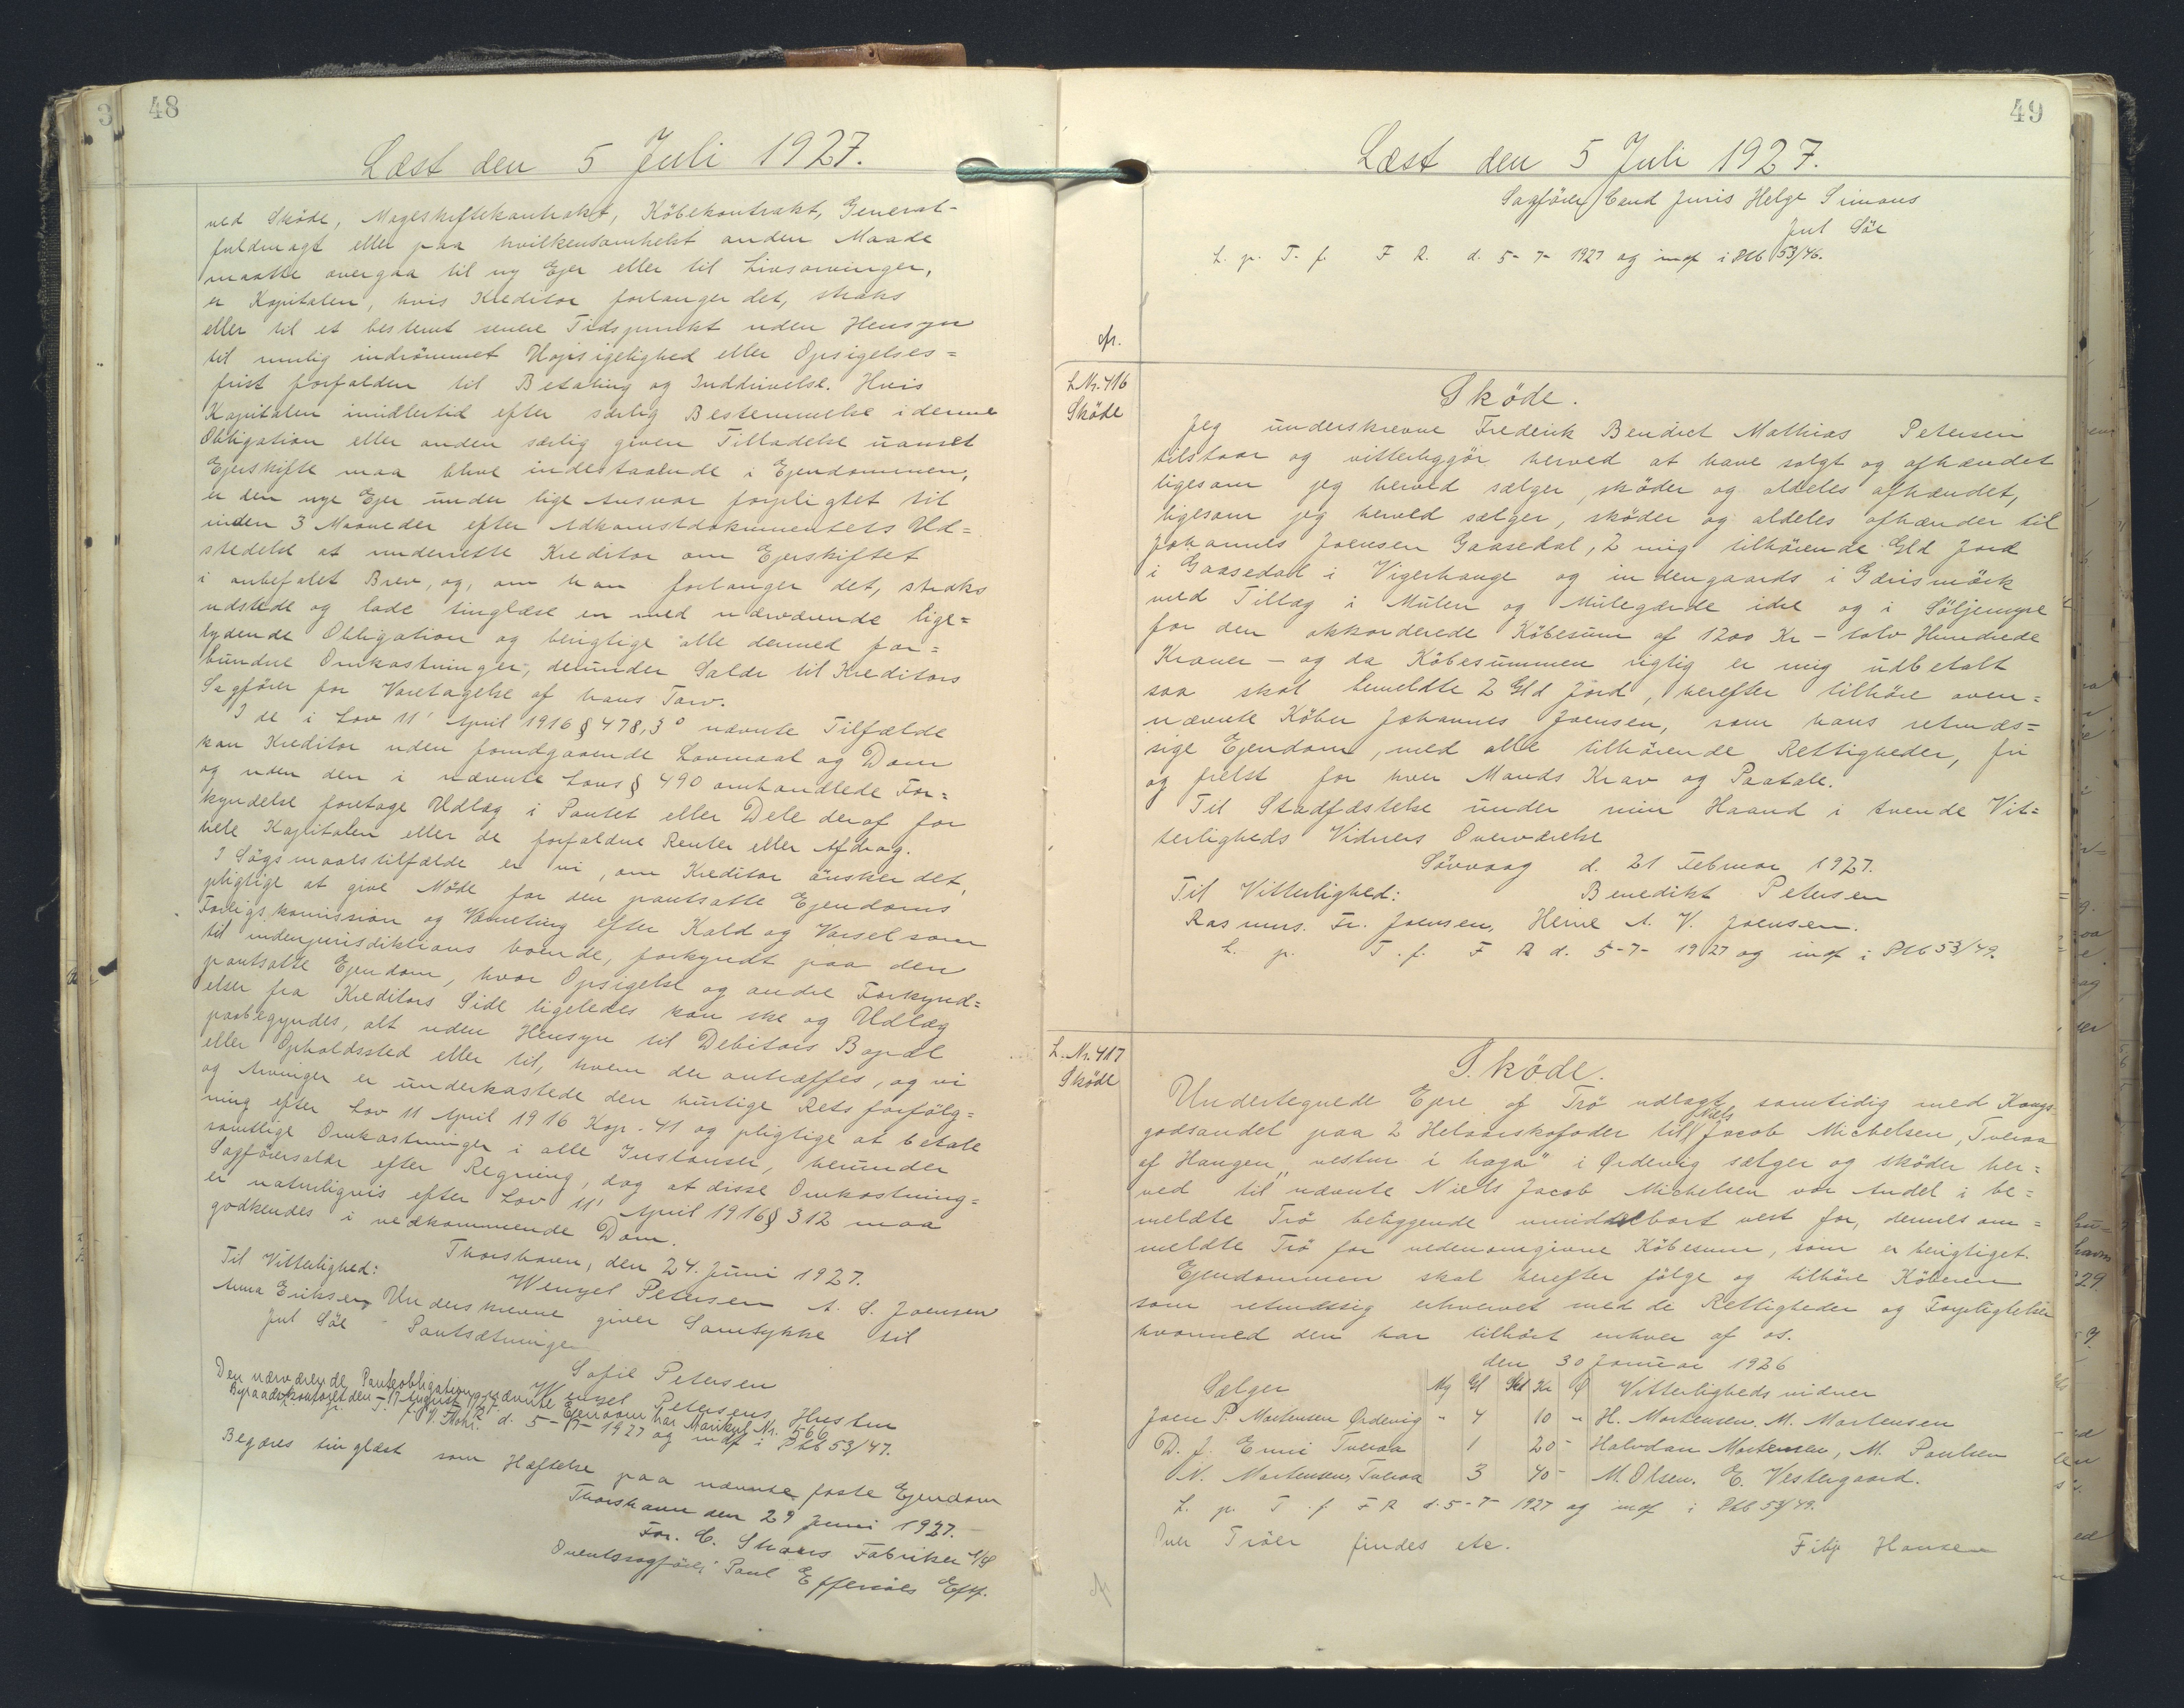 48
Læst den 5 Juli 1927.
ved Sköde, Mageskiftekontrakt, Köbekontrakt, General-
fuldmagt eller paa hvilkensomhelst anden Maade
maatte overgaa til ny Ejer eller til Livsarvinger,
er Kapitalen, hvis Kreditor forlanger det, straks
eller til et bestemt senere Tidspunkt uden Hensyn
til mulig indrömmet Uopsigelighed eller Opsigelses=
frist forfalden til Betaling og Inddrivelse. Hvis
Kapitalen imidlertid efter særlig Bestemmelse i denne
Obligation eller anden særlig given Tilladelse uanset
Ejerskifte maa blive indestaaende i Ejendommen,
er den nye Ejer under lige Ansvar forpligtet til
inden 3 Maaneder efter Adkomstdokumentets Ud=
stedelse at underrette Kreditor om Ejerskiftet
i anbefalet Brev, og, om han forlanger det, straks
udstede og lade tinglæse en med nærværende lige=
lydende Obligation og berigtige alle dermed for=
bundne Omkostninger, derunder Salær til Kreditors
Sagförer for Varetagelse af hans Tarv.
I de i Lov 11' April 1916 § 478,3° nævnte Tilfælde
kan Kreditor uden forudgaaende Lovmaal og Dom
og uden den i nævnte Lovs § 490 omhandlede For=
kyndelse foretage Udlæg i Pantet eller Dele deraf for
hele Kapitalen eller de forfaldne Renter eller Afdrag.
I Sögsmaalstilfælde er vi, om Kreditor önsker det,
pligtige at give Möde for den pantsatte Ejendoms
Forligskomission og Værneting efter Kald og Varsel som
til indenjurisdiktions boende, forkyndt paa den
pantsatte Ejendom, hvor Opsigelse og andre Forkynd=
elser fra Kreditors Side ligeledes kan ske og Udlæg
paabegyndes, alt uden Hensyn til Debitors Bopæl
eller Opholdssted eller til, hvem der antræffes, og vi
og Arvinger er underkastede den hurtige Retsforfölg=
ning efter Lov 11 April 1916 Kap. 41 og pligtige at betale
samtlige Omkostninger i alle Instanser, herunder
Sagförersalær efter Regning, dog at disse Omkostning=
er naturligvis efter Lov 11' April 1916 § 312 maa
godkendes i vedkommende Dom.
Thorshavn, den 24. Juni 1927.
Til Vitterlighed:
Wenzel Petersen A. S. Joensen
Anna Eriksen Underskrevne giver Samtykke til
Jul Söe Pantsætningen
Sofie Petersen
Wenzel Petersens Hustru
Den nærværende Panteobligation nævnte Ejendom har Matrikel Nr. 566
Byraadskontoret den 17 August 1927.
d. 5-7- 1927 og indf i Pbb 53/47.
Begæres tinglæst som Hæftelse paa nævnte faste Ejendom
Thorshavn den 29 Juni 1927.
For. C. Schous Fabriker A/S
Overretssagförer Paul Effersöes Eftf.
49
Læst den 5 Juli 1927.
Sagförer Cand Juris Helge Simons
Jul Söe
L. p. T. f. F R. d. 5- 7- 1927 og indf i Pbb 53/46.
L Nr. 416
Sköde
Sköde.
Jeg underskrevne Frederik Bendict Mathias Petersen
tilstaar og vitterliggör herved at have solgt og afhændet
ligesom jeg herved sælger, sköder og aldeles afhændet,
ligesom jeg herved sælger, sköder og aldeles afhænder til
Johannes Joensen Gaasedal, 2 mig tilhörende Gld Jord
i Gaasedal i Vigerhauge og indengaards i Gærismörk
med Tillæg i Mulen og Mulegærde idre og i Söljemyre
for den akkorderede Köbesum af 1200 Kr - tolv Hundrede
Kroner - og da Köbesummen rigtig er mig udbetalt
saa skal bemeldte 2 Gld Jord, herefter tilhöre oven=
nævnte Köber Johannes Joensen, som hans retmæs=
sige Ejendom, med alle tilhörende Rettigheder, fri
og frelst for hver Mands Krav og Paatale.
Til Stadfæstelse under min Haand i tvende Vit=
terligheds Vidners Overværelse
Sörvaag d. 21 Februar 1927.
Til Vitterlighed: Benedikt Petersen
Rasmus. Fr. Joensen, Heine A. V. Joensen.
L. p. T. f. F R d. 5-7- 1927 og indf i Pbb 53/49.
L. Nr. 417
Sköde
Sköde.
Undertegnede Ejere af Trö udlagt samtidig med Kongs-
godsandel paa 2 Helaarskofoder til Niels Jacob Michelsen, Tveraa
af Haugen „vestur i haga" i Ordevig sælger og sköder her=
ved til nævnte Niels Jacob Michelsen vor Andel i be=
meldte Trö beliggende umiddelbart vest for, dennes om=
meldte Trö for nedenomgivne Köbesum, som er berigtiget.
Ejendommen skal herefter fölge og tilhöre Köberen
som retmæssig erhvervet med de Rettigheder og Forpligtelser
hvormed den har tilhört enhver af os.
den 30 Januar 1926
Sælger Mg Gl Skd Kr Ö Vitterligheds vidner
Joen P. Mortensen Ordevig " 4 10 " H. Mortensen. M. Mortensen
D. J. Enni Tveraa 1 20 - Halvdan Mortensen, M. Poulsen
N. Mortensen, Tveraa 3 40 - M. Olsen. E. Vestergaard.
L. p. T. f. F R d. 5-7- 1927 og indf i Pbb 53/49.
Over Tröer findes etc. Filip Hansen